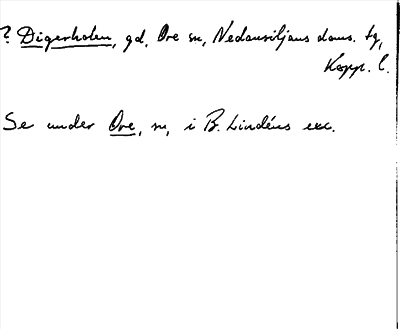 ? Digerholen, gd. Ore sn, Nedansiljans doms. tg,
Kopp. l.
Se under Ore, sn, i B. Lindéns exc.